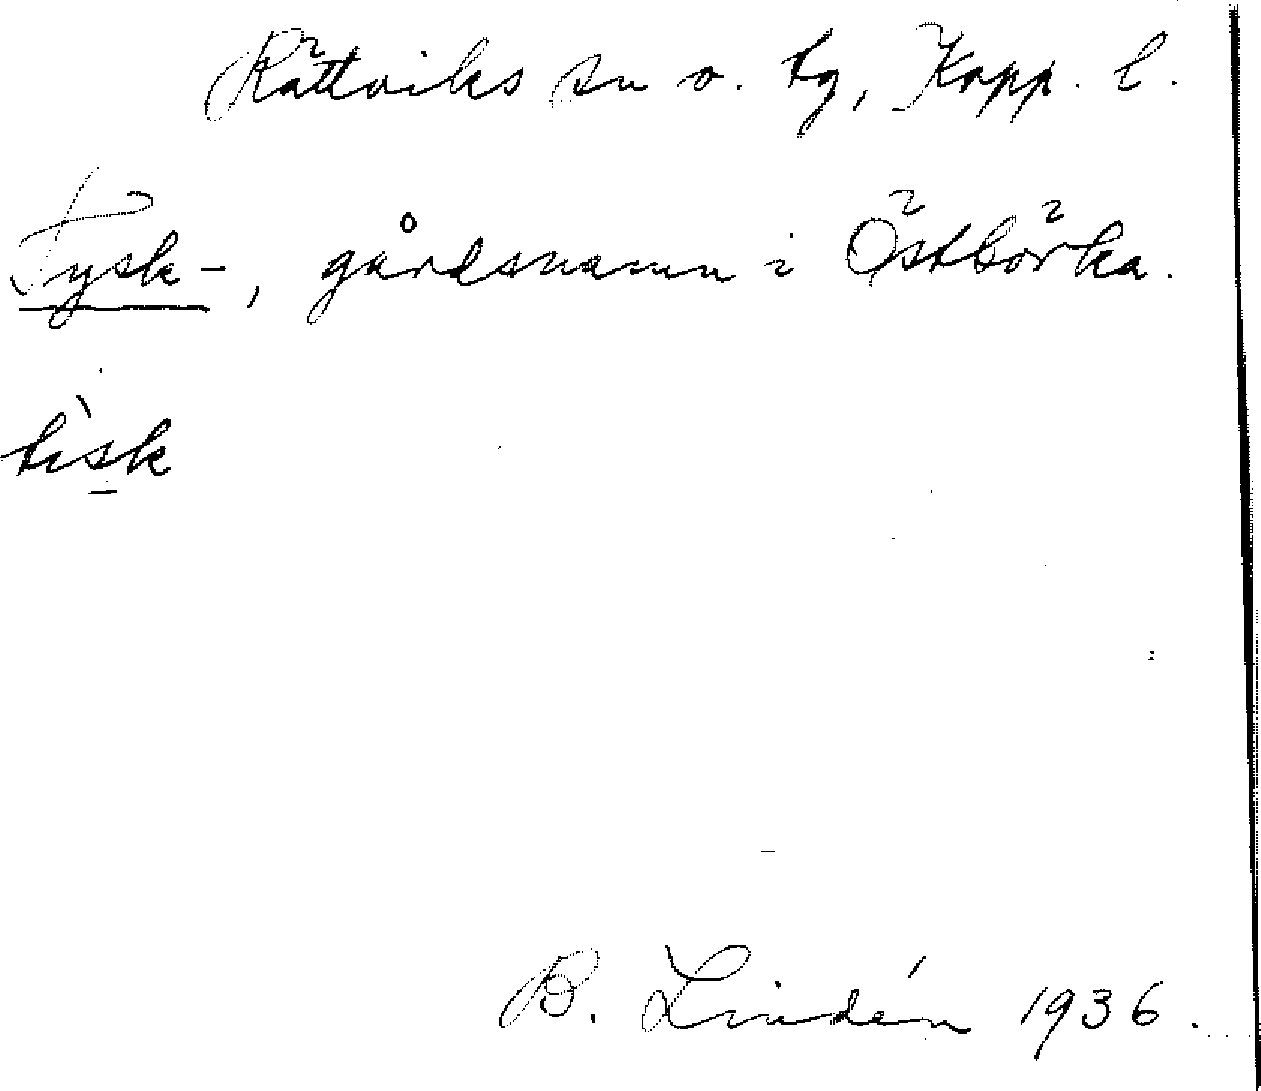 Rättviks sn o. tg, Kopp. l.
Tysk-, gårdsnamn i Östbörka.
tìsk
B. Lindén 1936.